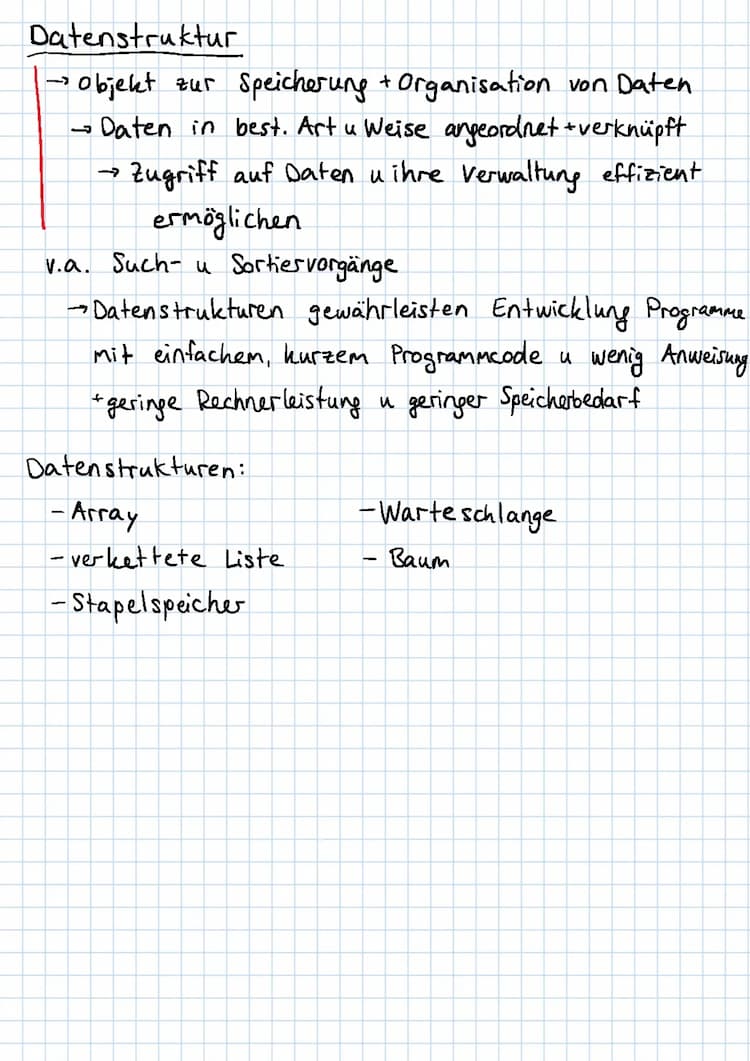 Datenstruktur
→ Objekt zur Speicherung + Organisation von Daten
→ Daten in best. Art u Weise angeordnet + verknüpft
→ Zugriff auf Daten u ihre Verwaltung effizient
ermöglichen
v.a. Such- u Sortiervorgänge
→ Datenstrukturen gewährleisten Entwicklung Programme
mit einfachem, kurzem Programmcode u wenig Anweisung
+ geringe Rechnerleistung u geringer Speicherbedarf
Datenstrukturen:
- Array
- Warteschlange
- verkettete Liste
- Baum
- Stapelspeicher